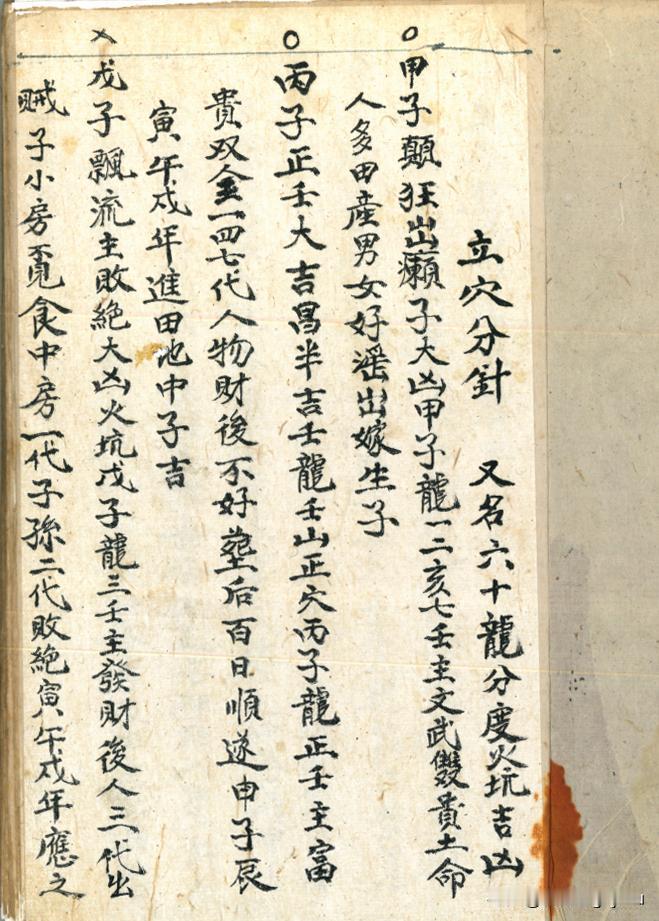 立穴分針 又名六十龍分度火坑吉凶
甲子顛狂出癩子大凶甲子龍一二亥七壬主文武雙貴土命
人多田產男女好滛出嫁生子
丙子正壬大吉昌半吉壬龍壬山正穴丙子龍正壬主富
貴双全一四七代人物財後不好塟后百日順遂申子辰
寅午戍年進田地中子吉
戊子飄流主敗絕大凶火坑戊子龍三壬主發財後人三代出
賊子小房覔食中房一代子孫二代敗絕寅午戍年應之